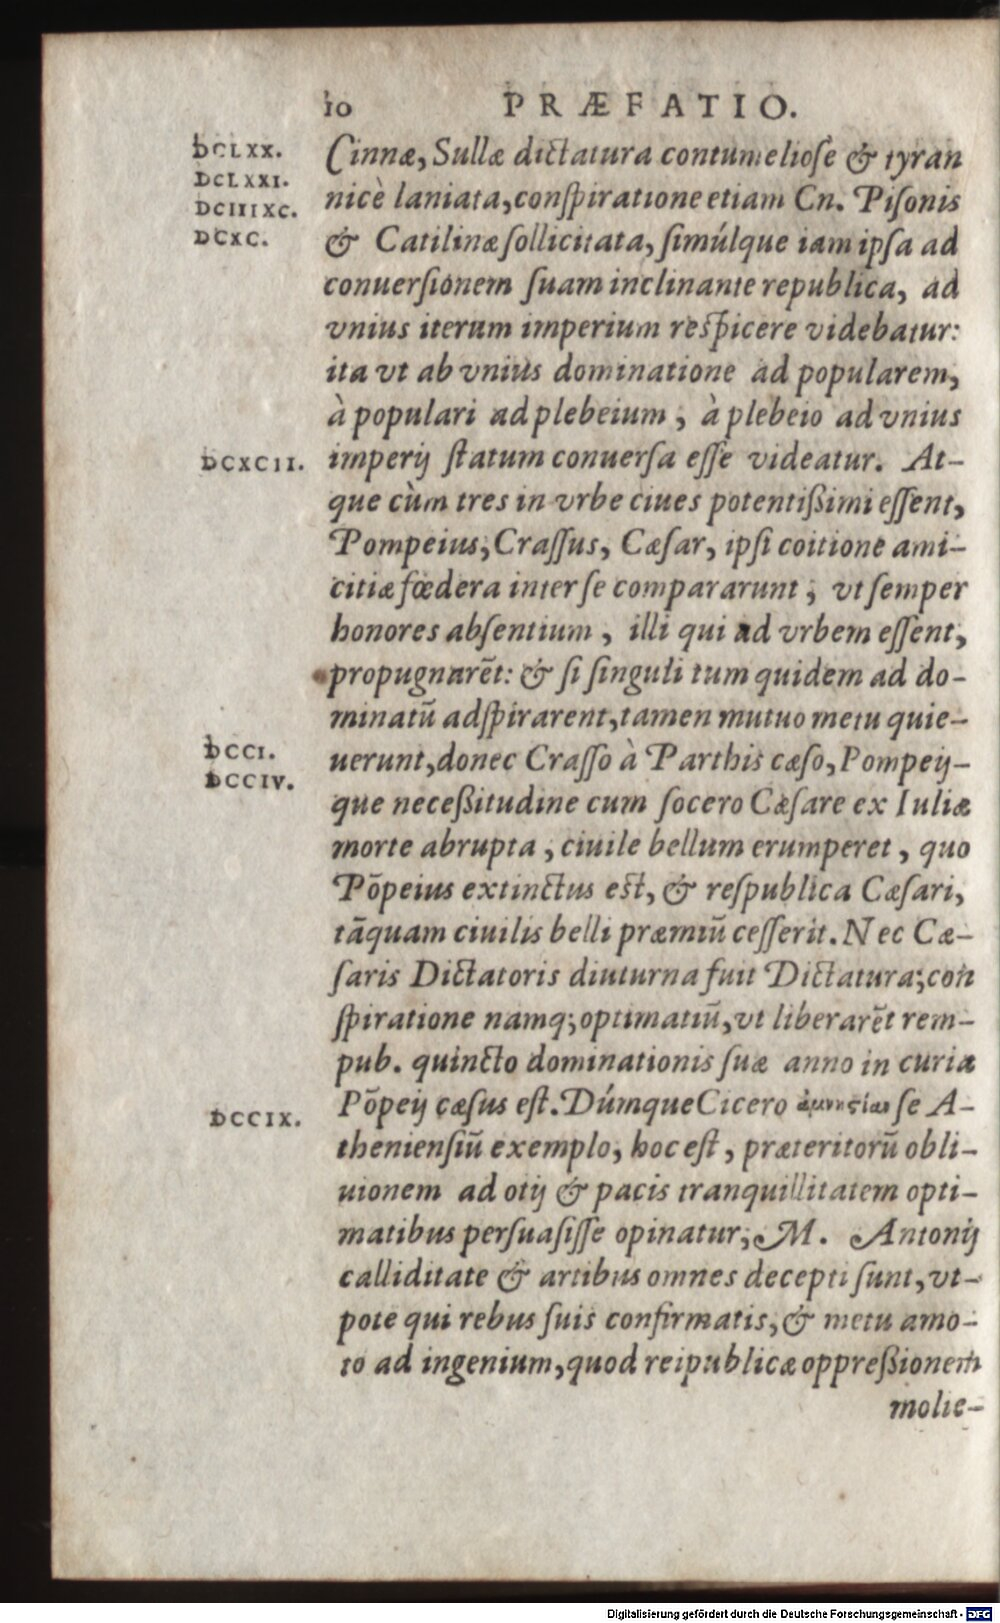 10 PRÆFATIO.
DCLXX.
DCLXXI.
DCIIIXC.
DCXC.
Cinnæ, Sullæ dictatura contumeliose & tyran
nicè laniata, conspiratione etiam Cn. Pisonis
& Catilinæ sollicitata, simúlque iam ipsa ad
conuersionem suam inclinante republica, ad
vnius iterum imperium respicere videbatur:
ita vt ab vnius dominatione ad popularem,
à populari ad plebeium, à plebeio ad vnius
DCXCII.
imperij statum conuersa esse videatur. At-
que cùm tres in vrbe ciues potentißimi essent,
Pompeius, Crassus, Cæsar, ipsi coitione ami-
citiæ fœdera inter se compararunt; vt semper
honores absentium, illi qui ad vrbem essent,
propugnarēt: & si singuli tum quidem ad do-
minatū adspirarent, tamen mutuo metu quie-
DCCI.
DCCIV.
uerunt, donec Crasso à Parthis cæso, Pompeij-
que neceßitudine cum socero Cæsare ex Iuliæ
morte abrupta, ciuile bellum erumperet, quo
Pōpeius extinctus est, & respublica Cæsari,
tāquam ciuilis belli præmiū cesserit. Nec Cæ-
saris Dictatoris diuturna fuit Dictatura; con
spiratione namq; optimatiū, vt liberarēt rem-
pub. quincto dominationis suæ anno in curia
DCCIX.
Pōpeij cæsus est. Dúmque Cicero ἀμνηστίαν se A-
theniensiū exemplo, hoc est, præteritorū obli-
uionem ad otij & pacis tranquillitatem opti-
matibus persuasisse opinatur; M. Antonij
calliditate & artibus omnes decepti sunt, vt-
pote qui rebus suis confirmatis, & metu amo-
to ad ingenium, quod reipublicæ oppreßionem
molie-
Digitalisierung gefördert durch die Deutsche Forschungsgemeinschaft - DFG